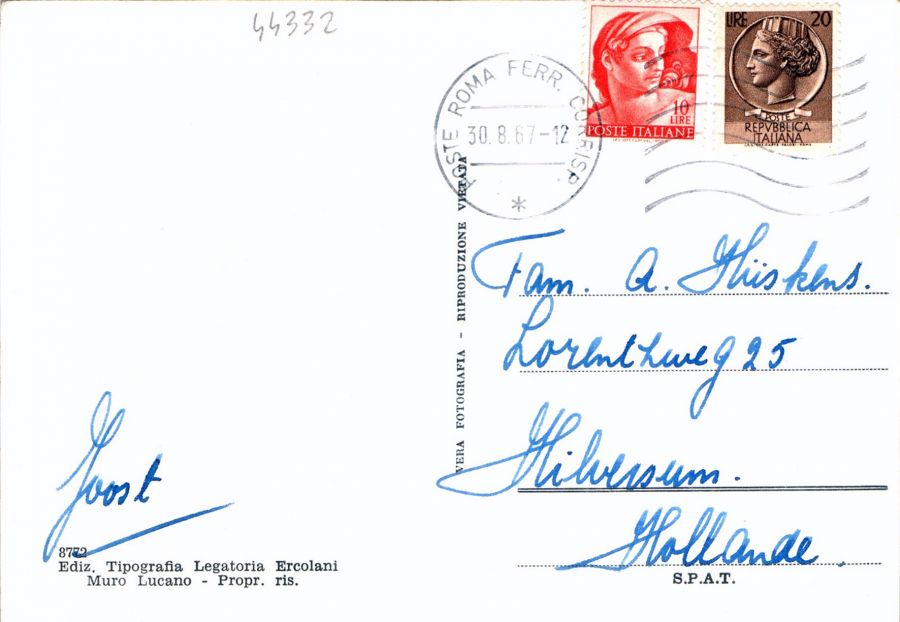 44332
POSTE ROMA FERR. CORRISP.
30.8.67-12
*
10
LIRE
POSTE ITALIANE
LIRE 20
POSTE
REPVBBLICA
ITALIANA
VERA FOTOGRAFIA - RIPRODUZIONE VIETATA
Fam. A. Hüskens.
Lorentzweg 25
Hilversum.
Hollande.
Joost
8772
Ediz. Tipografia Legatoria Ercolani
Muro Lucano - Propr. ris.
S.P.A.T.